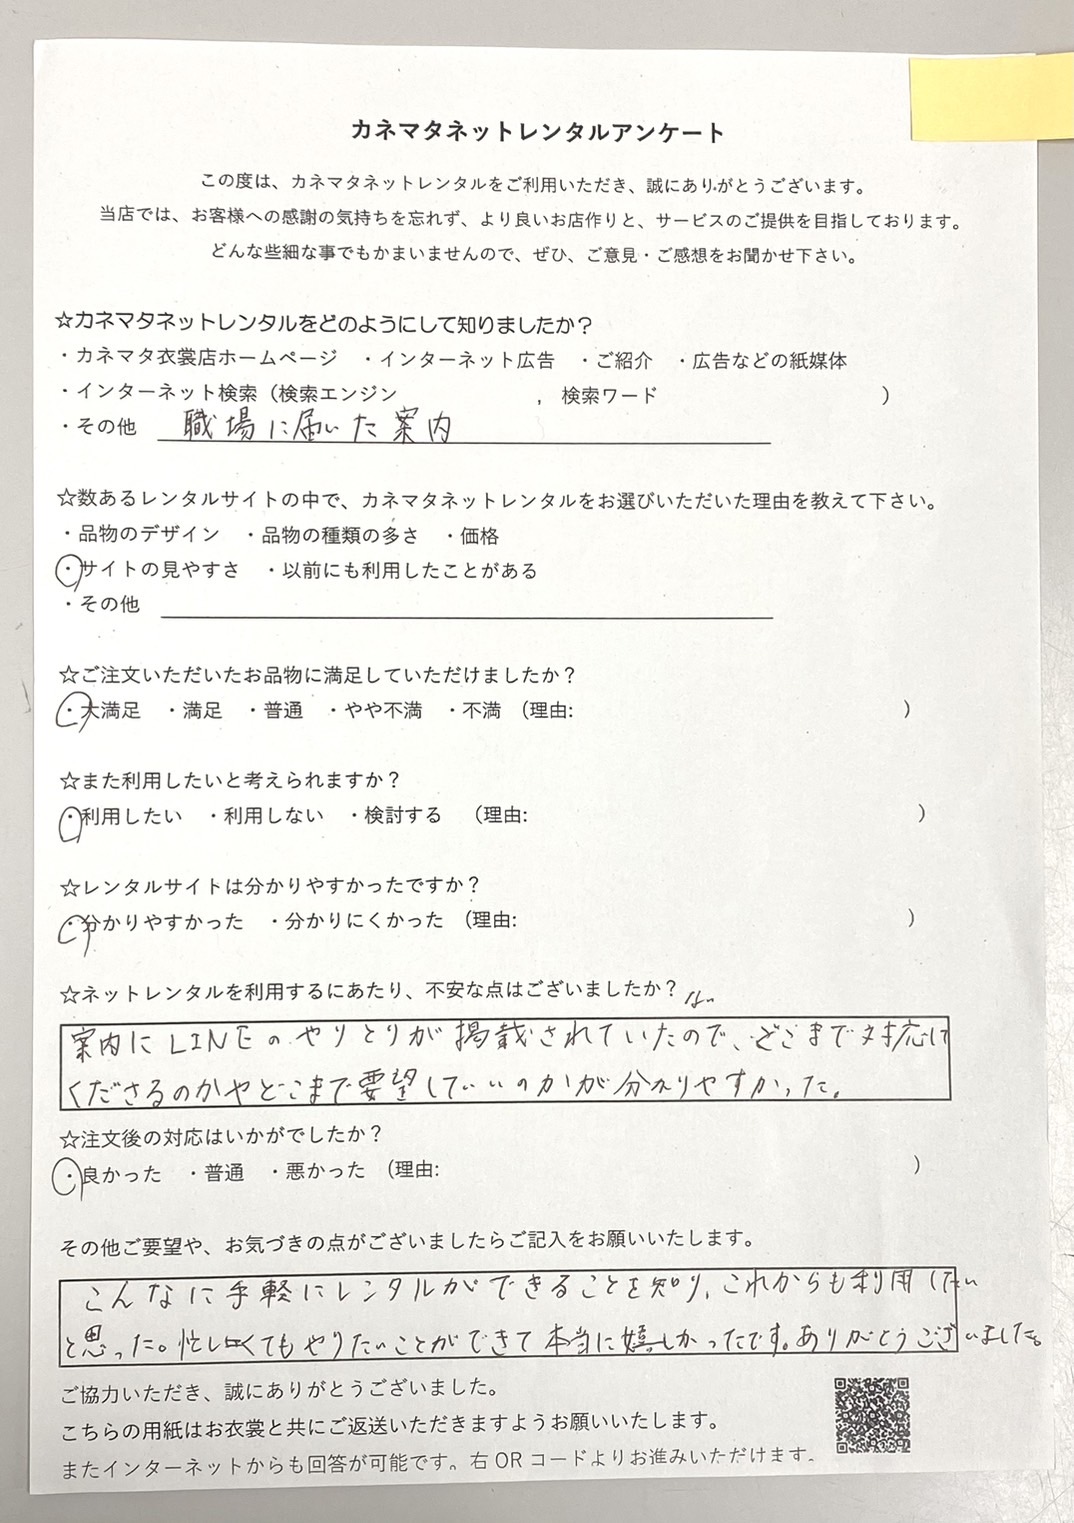 カネマタネットレンタルアンケート
この度は、カネマタネットレンタルをご利用いただき、誠にありがとうございます。
当店では、お客様への感謝の気持ちを忘れず、より良いお店作りと、サービスのご提供を目指しております。
どんな些細な事でもかまいませんので、ぜひ、ご意見・ご感想をお聞かせ下さい。
☆カネマタネットレンタルをどのようにして知りましたか？
・カネマタ衣裳店ホームページ ・インターネット広告 ・ご紹介 ・広告などの紙媒体
・インターネット検索（検索エンジン ，検索ワード ）
・その他 職場に届いた案内
☆数あるレンタルサイトの中で、カネマタネットレンタルをお選びいただいた理由を教えて下さい。
・品物のデザイン ・品物の種類の多さ ・価格
・サイトの見やすさ ・以前にも利用したことがある
・その他
☆ご注文いただいたお品物に満足していただけましたか？
・大満足 ・満足 ・普通 ・やや不満 ・不満 （理由: ）
☆また利用したいと考えられますか？
・利用したい ・利用しない ・検討する （理由: ）
☆レンタルサイトは分かりやすかったですか？
・分かりやすかった ・分かりにくかった （理由: ）
☆ネットレンタルを利用するにあたり、不安な点はございましたか？ ない
案内にLINEのやりとりが掲載されていたので、どこまで対応して
くださるのかやどこまで要望していいのかが分かりやすかった。
☆注文後の対応はいかがでしたか？
・良かった ・普通 ・悪かった （理由: ）
その他ご要望や、お気づきの点がございましたらご記入をお願いいたします。
こんなに手軽にレンタルができることを知り、これからも利用したい
と思った。忙しくてもやりたいことができて本当に嬉しかったです。ありがとうございました。
ご協力いただき、誠にありがとうございました。
こちらの用紙はお衣裳と共にご返送いただきますようお願いいたします。
またインターネットからも回答が可能です。右QRコードよりお進みいただけます。